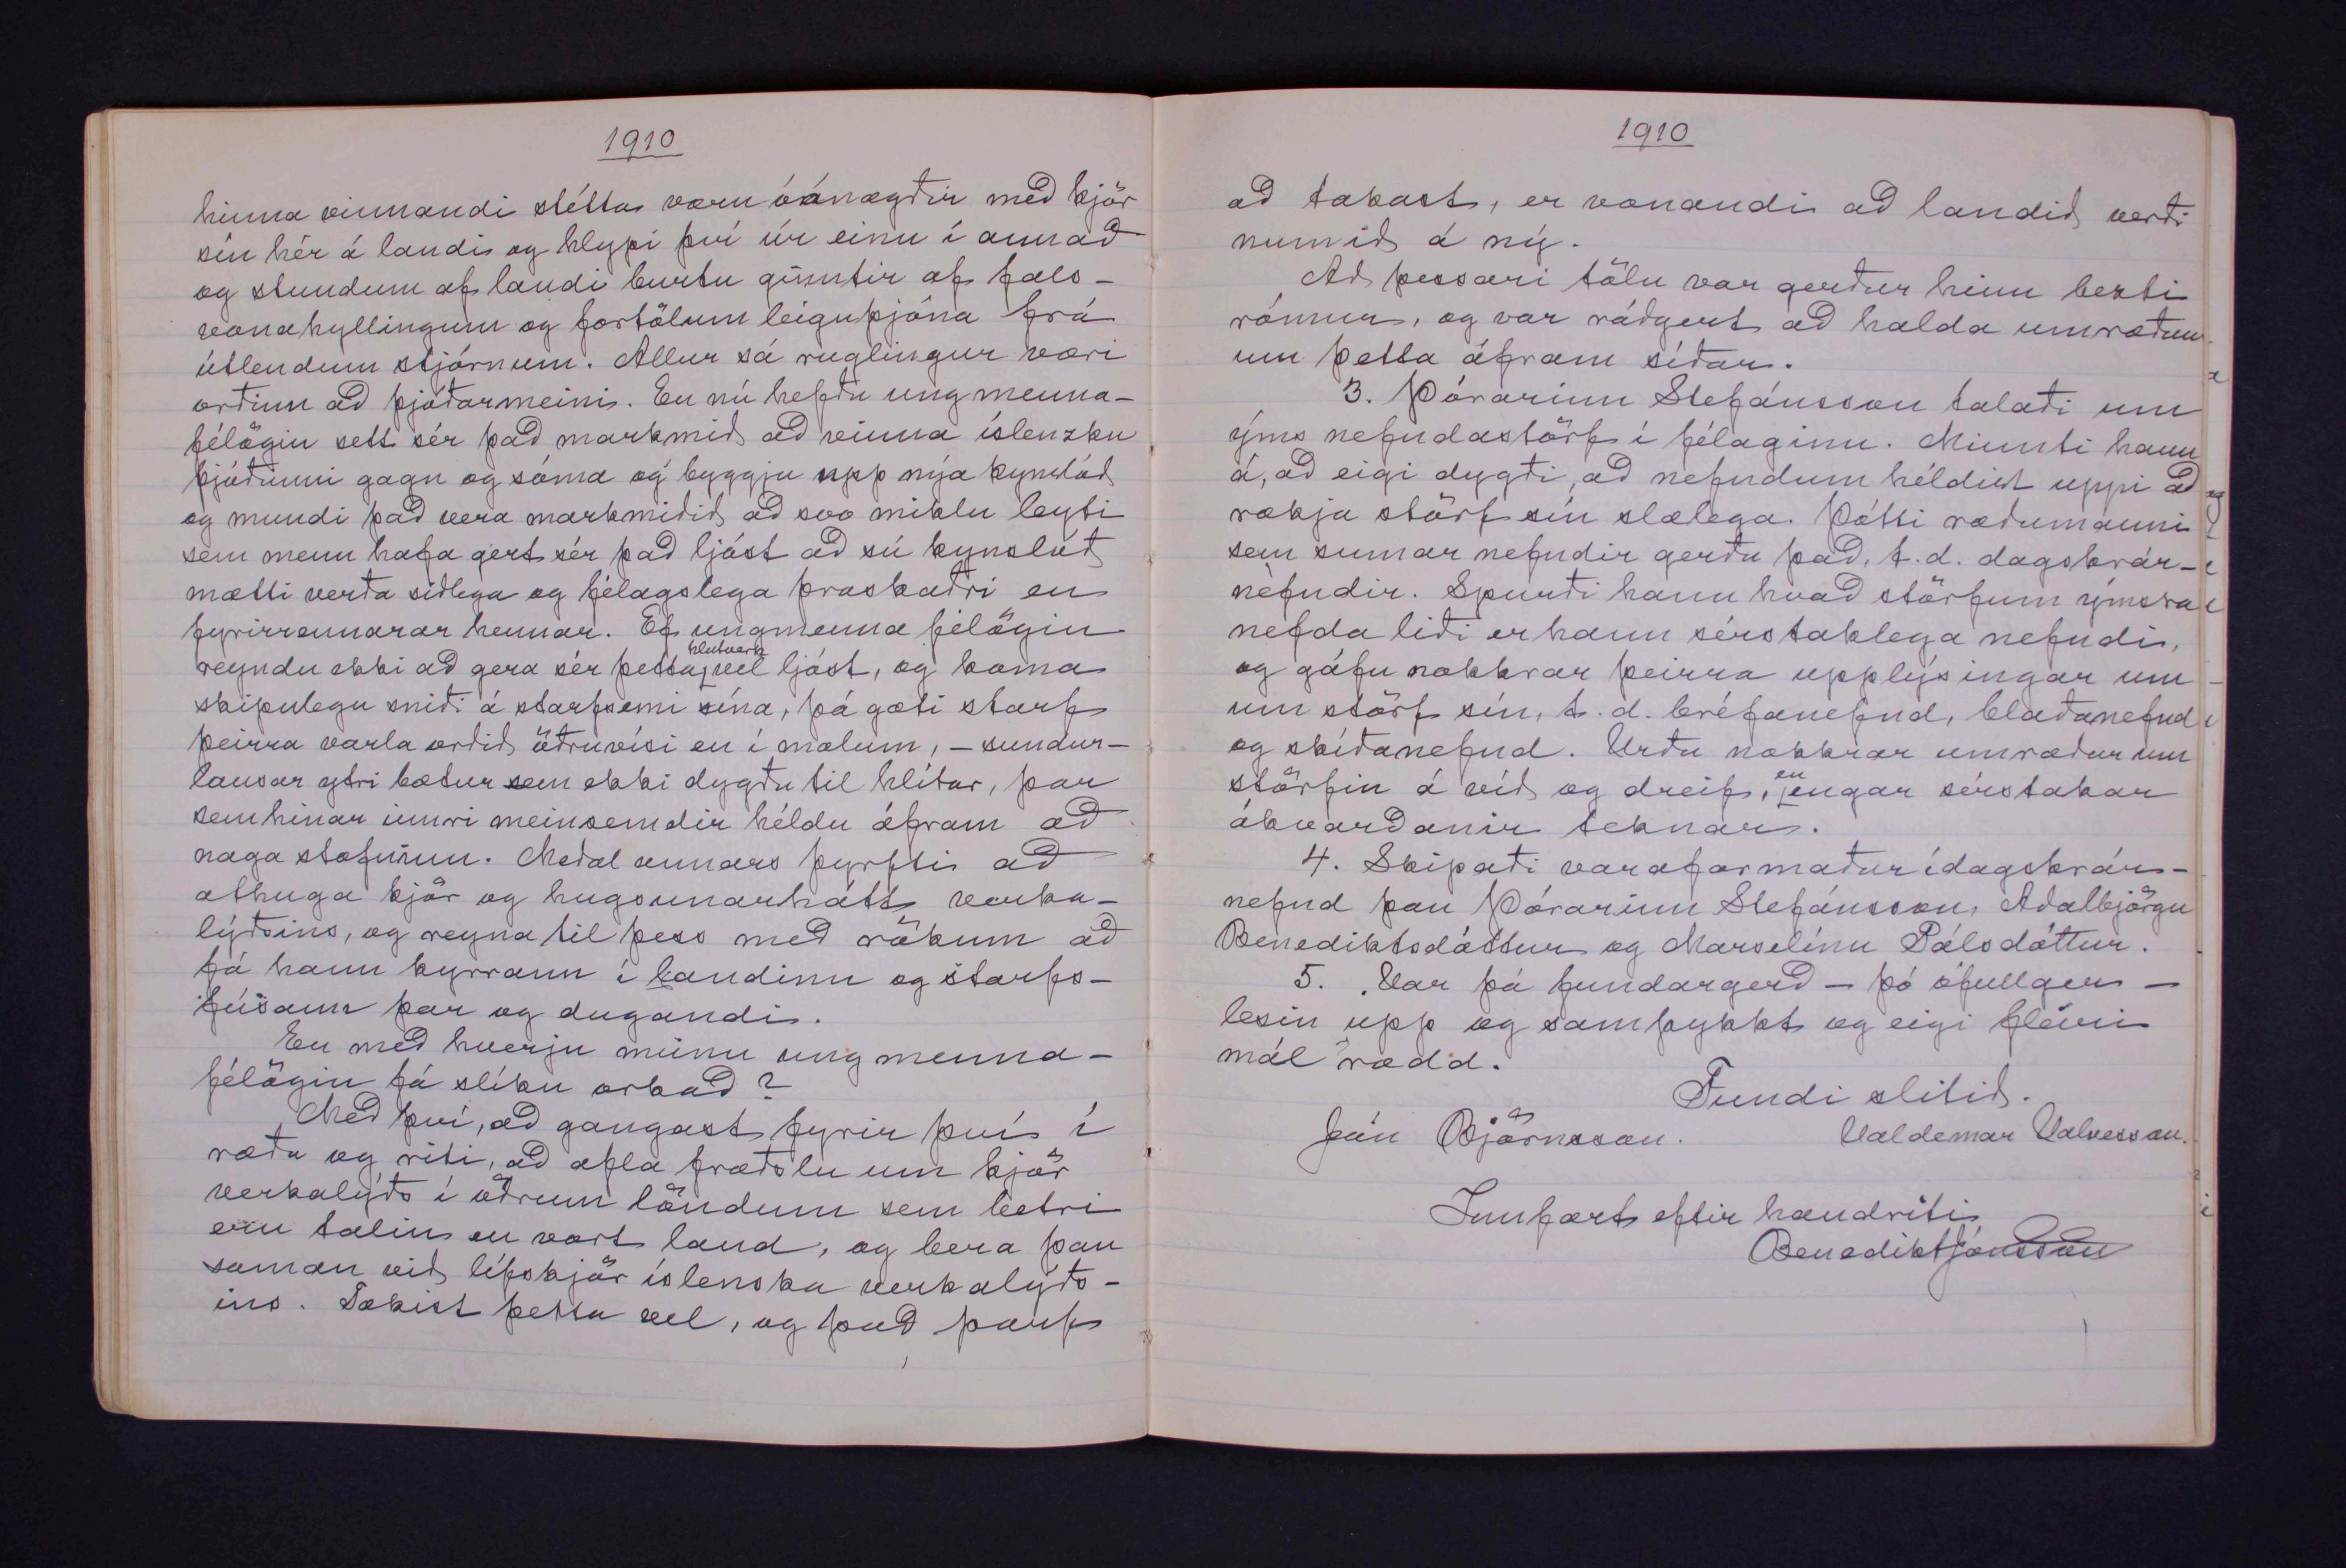 1910
hinna vinnandi stétta væru óánægðir með kjör
sín hér á landi og hlypi því úr einu í annað
og stundum af landi burtu ginntir af fals-
vonahyllingum og fortölum leiguþjóna frá
útlendum stjórnum. Allur sá ruglingur væri
orðinn að þjóðarmeini. En nú hefðu ungmenna-
félögin sett sér það markmið að vinna íslenzku
þjóðinni gagn og sóma og byggja upp nýa kynslóð
og mundi það vera markmiðið að svo miklu leyti
sem menn hafa gert sér það ljóst að sú kynslóð
mætti verða siðlega og félagslega þroskaðri en
fyrirrennarar hennar. Ef ungmenna félögin
reyndu ekki að gera sér þetta hlutverk vel ljóst, og koma
skipulegu sniði á starfsemi sína, þá gæti starf
þeirra varla orðið öðruvísi en í molum, - sundur-
lausar ytri bætur sem ekki dygðu til hlítar, þar
sem hinar innri meinsemdir héldu áfram að
naga stofninn. Meðal annars þyrfti að
athuga kjör og hugsunarhátt verka-
lýðsins, og reyna til þess með rökum að
fá hann kyrrann í landinu og starfs-
fúsann þar og dugandi.
En með hverju munu ungmenna-
félögin fá slíku orkað?
Með því, að gangast fyrir því í
ræðu og riti, að afla fræðslu um kjör
verkalýðs í öðrum löndum sem betri
eru talin en vort land, og bera þau
saman við lífskjör íslenska verkalýðs-
ins. Takist þetta vel, og það þarf
1910
að takast, er vonandi að landið verði
numið á ný.
Að þessari tölu var gerður hinn bezti
rómur, og var ráðgert að halda umræðum
um þetta áfram síðar.
3. Þórarinn Stefánsson talaði um
ýms nefndastörf í félaginu. Minnti hann
á, að eigi dygði, að nefndum héldist uppi að
rækja störf sín slælega. Þótti ræðumanni
sem sumar nefndir gerðu það, t.d. dagskrár-
nefndir. Spurði hann hvað störfum ýmsra
nefda liði er hann sérstaklega nefndi,
og gáfu nokkrar þeirra upplýsingar um
um störf sín, t.d. bréfanefnd, blaðanefnd
og skíðanefnd. Urðu nokkrar umræður um
störfin á víð og dreif, en engar sérstakar
ákvarðanir teknar.
4. Skipaði varaformaður í dagskrár-
nefnd þau Þórarinn Stefánsson, Aðalbjörgu
Benediktsdóttur og Marselínu Pálsdóttur.
5. Var þá fundargerð - þó ófullger -
lesin upp og samþykkt og eigi fleiri
mál rædd.
Fundi slitið.
Jón Björnsson. Valdemar Valvesson.
Innfært eftir handriti
Benedikt Jónsson